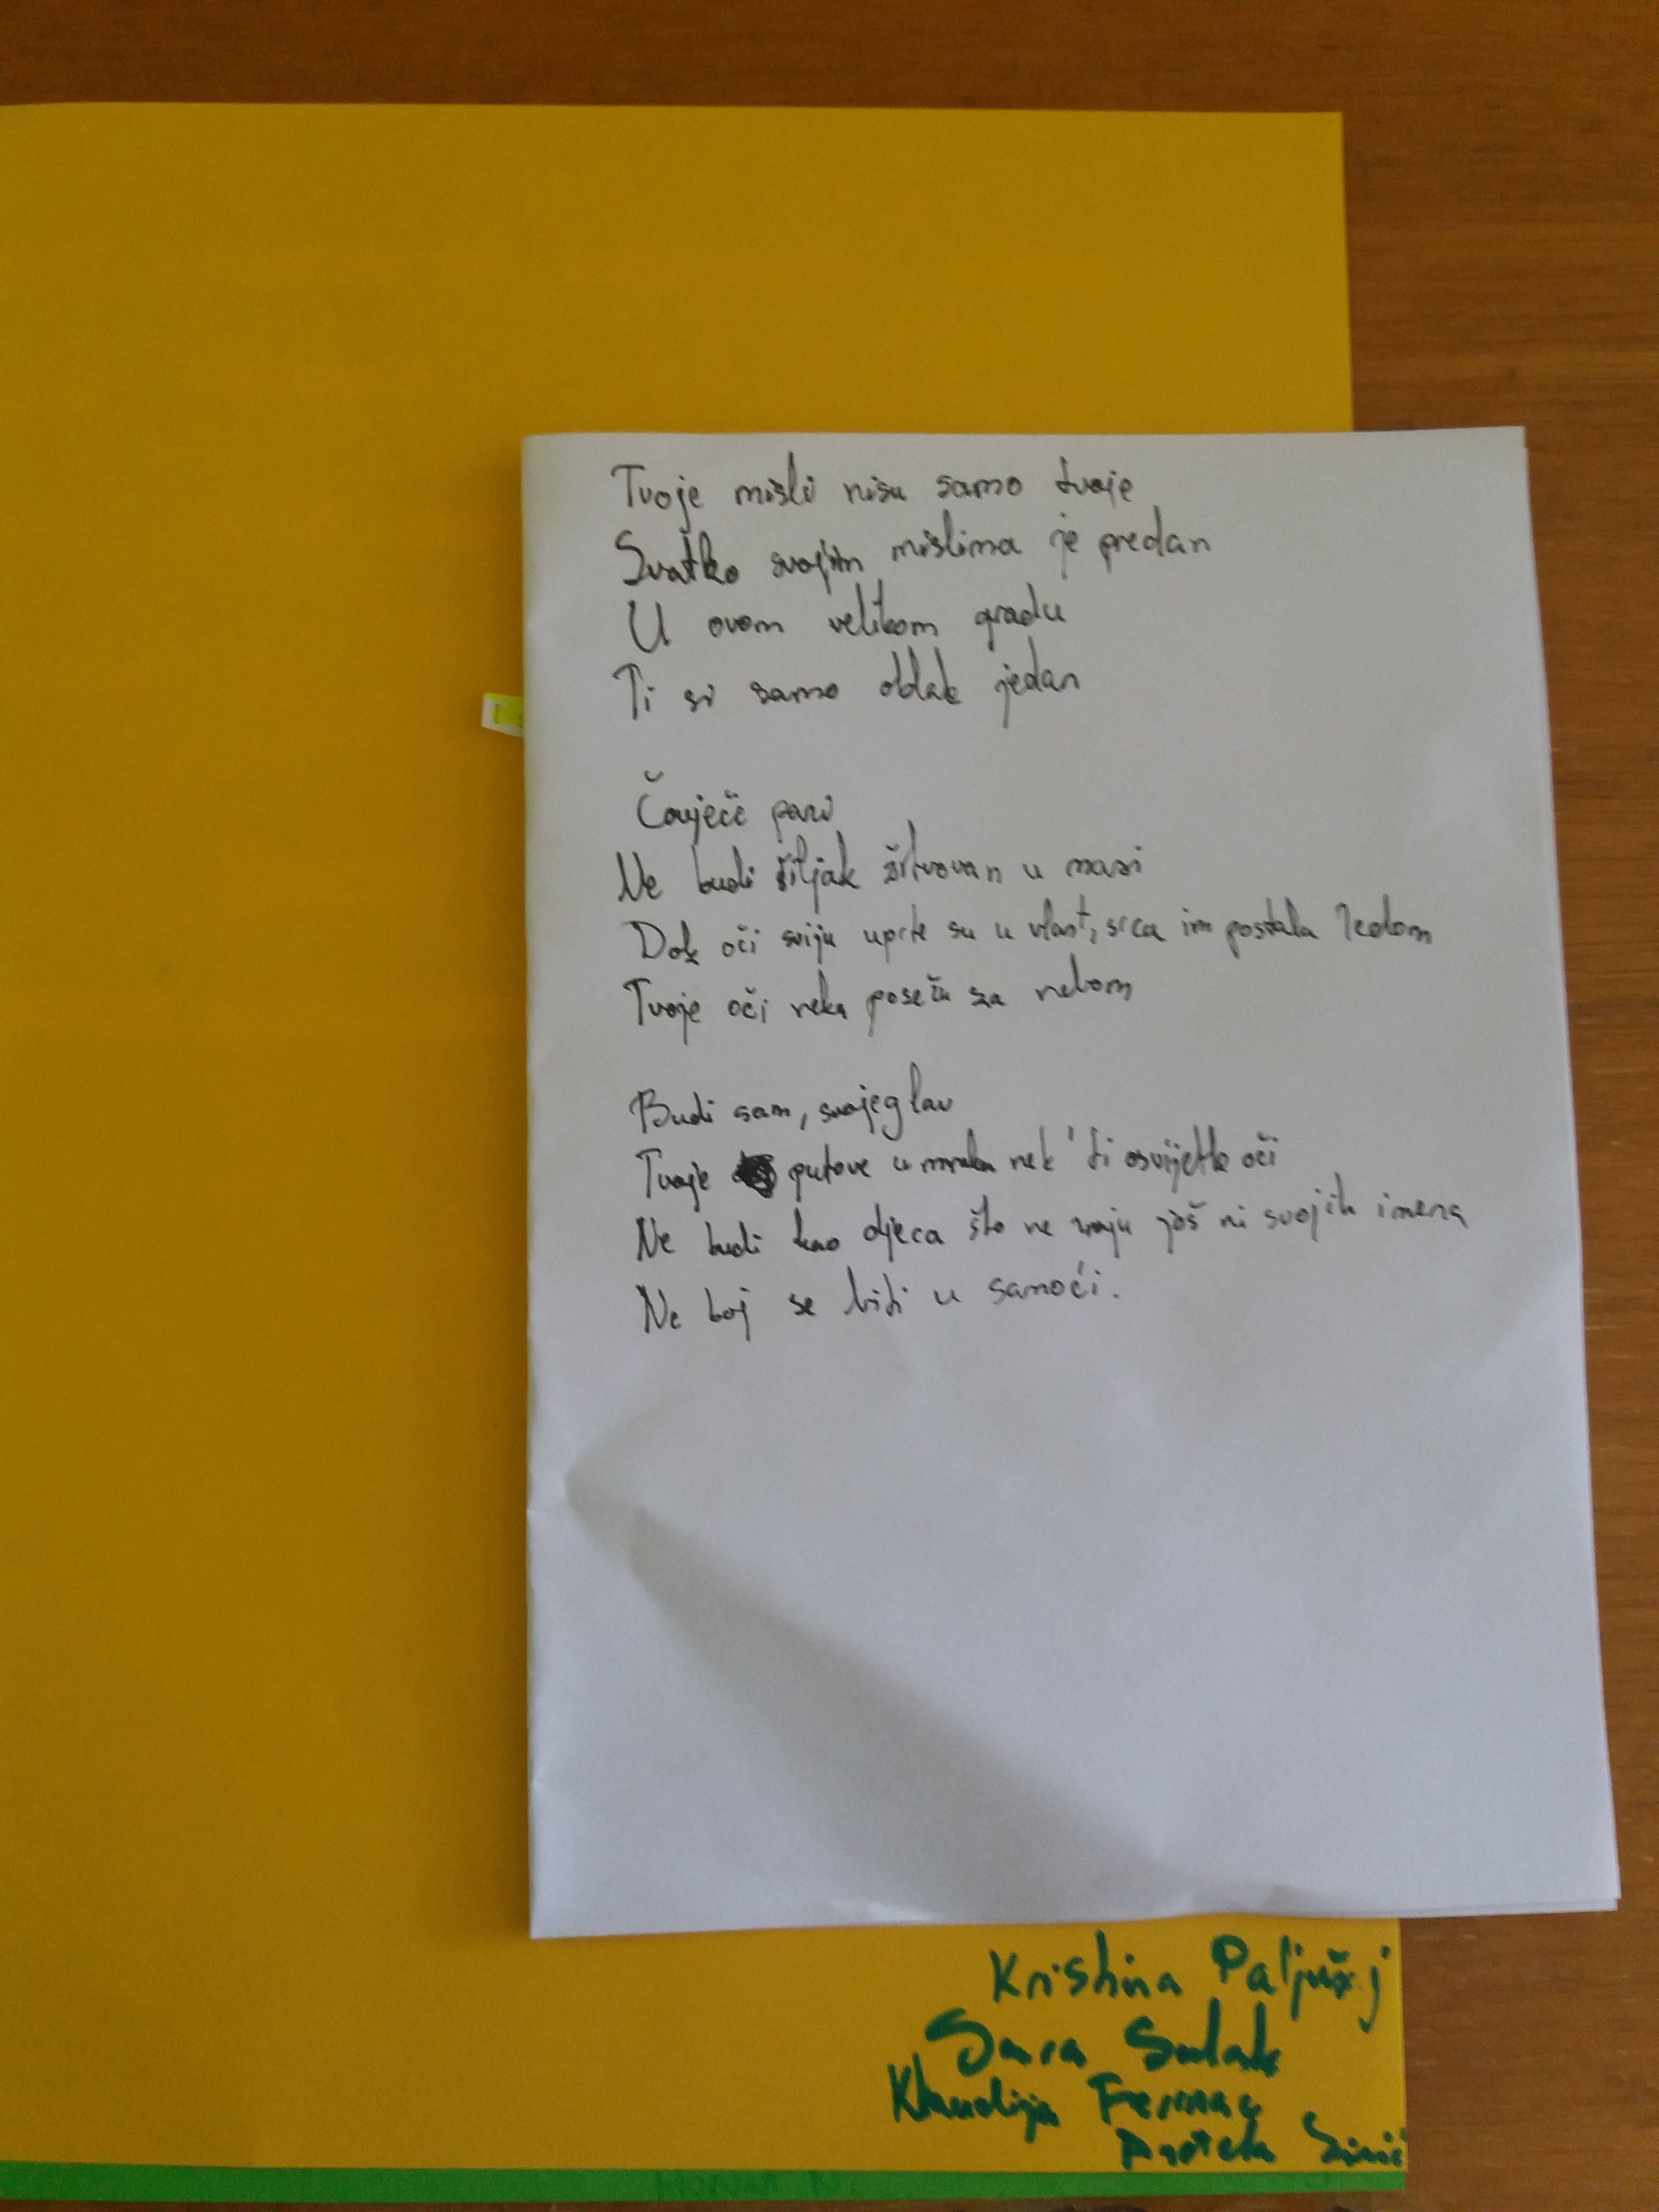 Tvoje misli nisu samo tvoje
Svatko svojim mislima je predan
U ovom velikom gradu
Ti si samo oblak jedan
Čovječe pazi
Ne budi šiljak žrtvovan u masi
Dok oči sviju uprte su u vlast, srca im postala ledom
Tvoje oči neka posežu za nebom
Budi sam, svojeglav
Tvoje putove u mraku nek' ti osvijetle oči
Ne budi kao djeca što ne znaju još ni svojih imena
Ne boj se biti u samoći.
Kristina
Sara Sulak
Klaudija Fermac